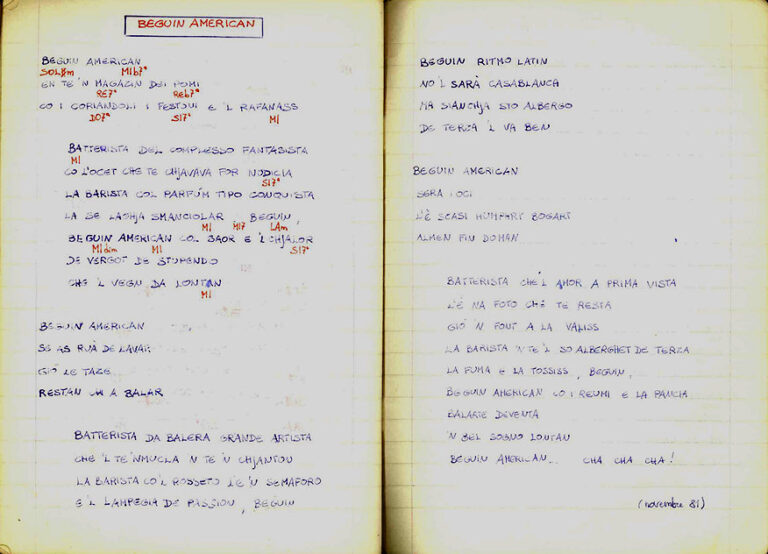 BEGUIN AMERICAN
BEGUIN AMERICAN
SOL#m MIb7ª
EN TE 'N MAGAZIN DEI POMI
RE7ª REb7ª
CO I CORIANDOLI I FESTONI E 'L RAFANASS
DO7ª SI7ª MI
BATTERISTA DEL COMPLESSO FANTASISTA
MI
CO L'OCET CHE TE CHJAVAVA FOR
SI7ª
LA BARISTA COL PARFÚM TIPO CONQUISTA
LA SE LAGHJA SMANCIOLAR, BEGUIN,
MI MI7 LAm
BEGUIN AMERICAN COL SAOR E 'L CHJALOR
MIdim MI SI7ª
DE VERGOT DE STUPENDO
CHE 'L VEGN DA LONTAN
MI
BEGUIN AMERICAN
SE AS RUÀ DE LAVAR
GIÓ LE TAZE
RESTAN CHÍ A BALAR
BATTERISTA DA BALERA GRANDE ARTISTA
CHE 'L TE 'NMUCLA 'N TE 'N CHJANTOU
LA BARISTA CO'L ROSSETO L'E 'N SEMAFORO
E 'L LAMPEGIA DE PASSION, BEGUIN
BEGUIN RITMO LATIN
NO'L SARÀ CASABLANCA
MA SIANCHJA STO ALBERGO
DE TERZA 'L VA BEN
BEGUIN AMERICAN
SERA I OCI
L'È SCASI HUMPHRY BOGART
ALMEN FIN DOMAN
BATTERISTA CHE 'L AMOR A PRIMA VISTA
L'È NA FOTO CHE TE RESTA
GIÓ 'N FOUT A LA VALISS
LA BARISTA 'N TE 'L SO ALBERGHET DE TERZA
LA FUMA E LA TOSSISS, BEGUIN,
BEGUIN AMERICAN CO I REUMI E LA PANCIA
BALARTE DEVENTA
'N BEL SOGNO LONTAN
BEGUIN AMERICAN... CHA CHA CHA!
(novembre 81)